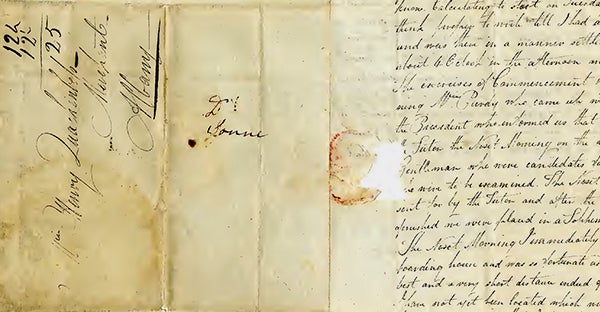 12½
12½
25
Henry Quackenboss
Merchant
Albany
Dr.
know. Calculating to start on Tuesda
think to write till I had a
and was then in a manner settle
about 4 O Clock in the afternoon
The exercises of Commencement
ning Mr Purdy who came up w
the President who informed us that
a Tutor the Next Morning on the
Gentlemen who were candidates
we were to be examined. The Next
sent for by the Tutor and after the
finished we were placed in a Sophom
The Next Morning I immediately
boarding house and was so fortunate as
best and a very short distance indeed
I have not yet been located which